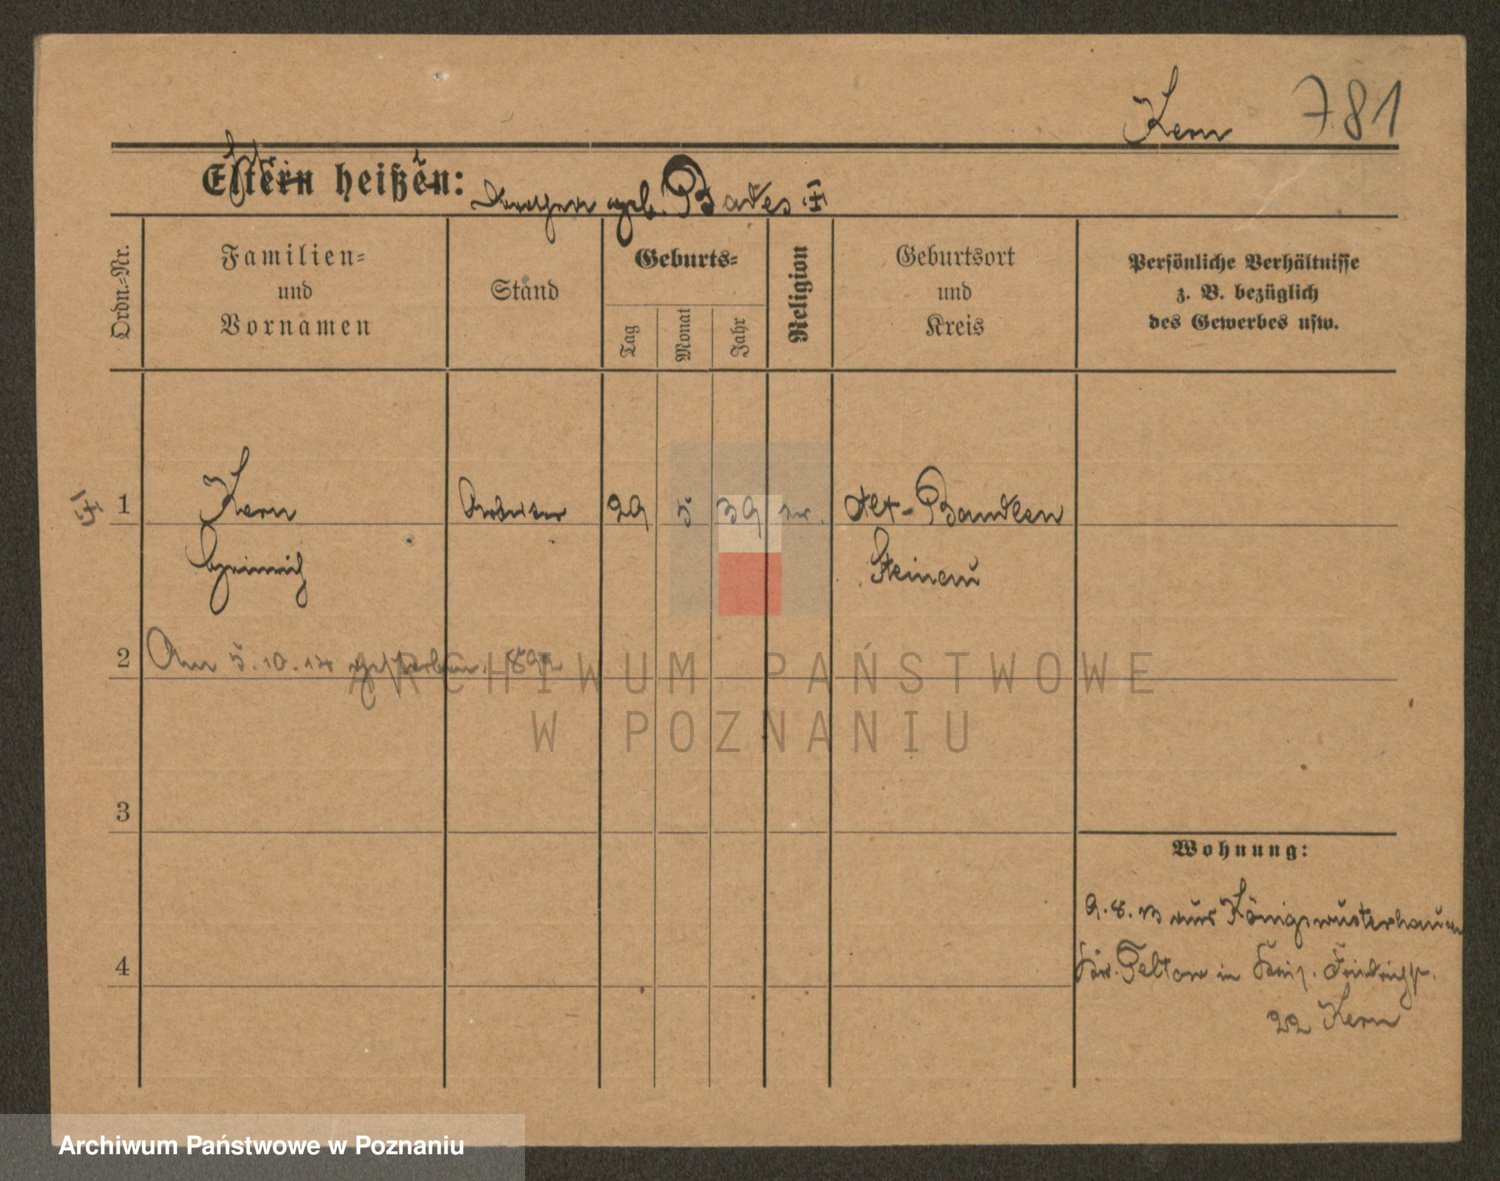 Kern 781
Eltern heißen:
geb. Bades
Ordn.-Nr.
Familien-
und
Vornamen
Stand
Geburts-
Tag
Monat
Jahr
Religion
Geburtsort
und
Kreis
Persönliche Verhältnisse
z. B. bezüglich
des Gewerbes usw.
1 Kern Arbeiter 29 5 39 ev. Alt-Bandlen
Heinrich Steinau
2 Am 5.10.14 gestorben.
ARCHIWUM PAŃSTWOWE
W POZNANIU
3
Wohnung:
9.8.13 aus Königswusterhausen
4
Kr. Teltow in
22 Kern
Archiwum Państwowe w Poznaniu